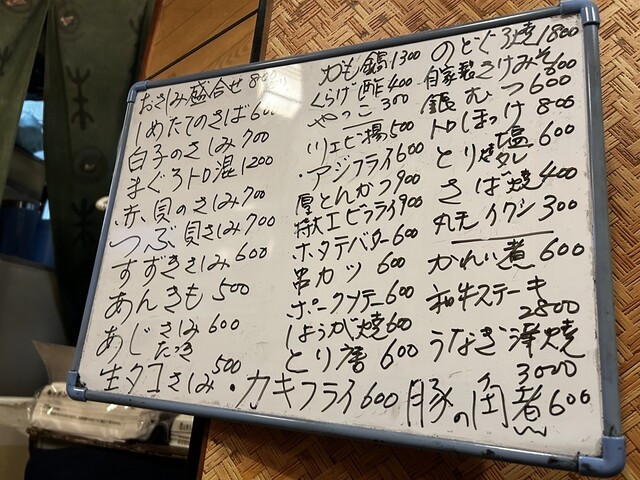 おさしみ盛合せ 800
しめたてのさば 600
白子のさしみ 700
まぐろトロ混 1200
赤貝のさしみ 700
つぶ貝さしみ 700
すずきさしみ 600
あんきも 500
あじ さしみ たたき 600
生タコさしみ 500
かも鍋 1300
くらげ酢 400
やっこ 300
川エビ揚 500
・アジフライ 600
厚とんかつ 900
特大エビフライ 900
ホタテバター 600
串カツ 600
ポークソテー 600
しょうが焼 600
とり唐 600
・カキフライ 600
のどぐろ焼 1800
自家製さけみそ 600
銀むつ 600
トロほっけ 800
とり焼 塩 タレ 600
さば焼 400
丸干イワシ 300
かれい煮 600
和牛ステーキ
2800
うなぎ浄焼
3000
豚の角煮 600